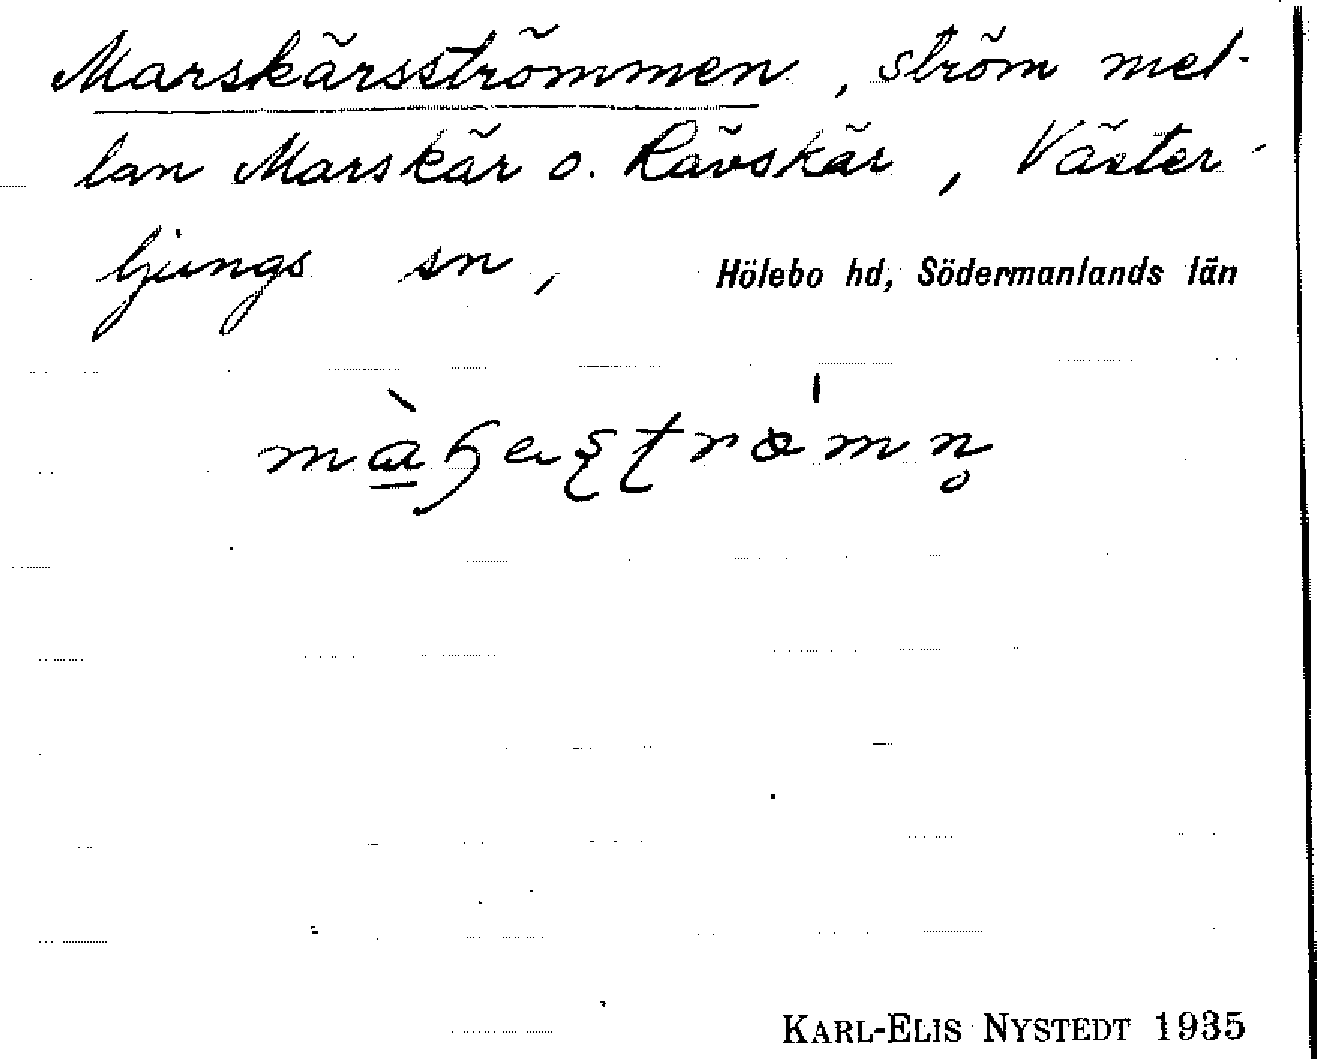 Marskärsströmmen, ström mel-
lan Marskär o. Rävskär, Väster-
ljungs sn, Hölebo hd, Södermanlands län
KARL-ELIS NYSTEDT 1935